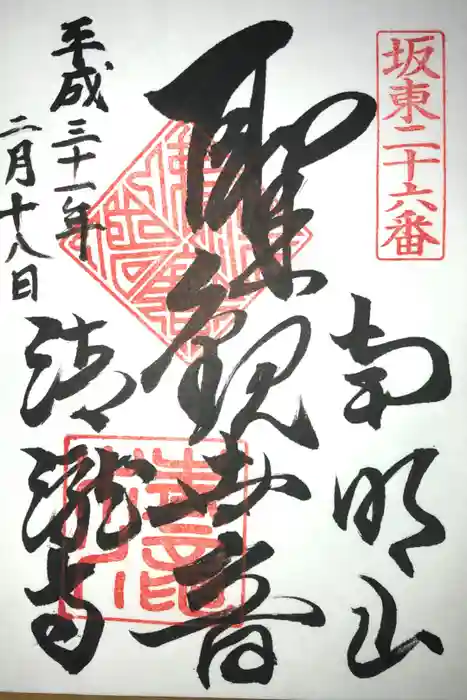 坂東二十六番
南明山
聖観世音
清瀧寺
平成三十一年
二月十八日